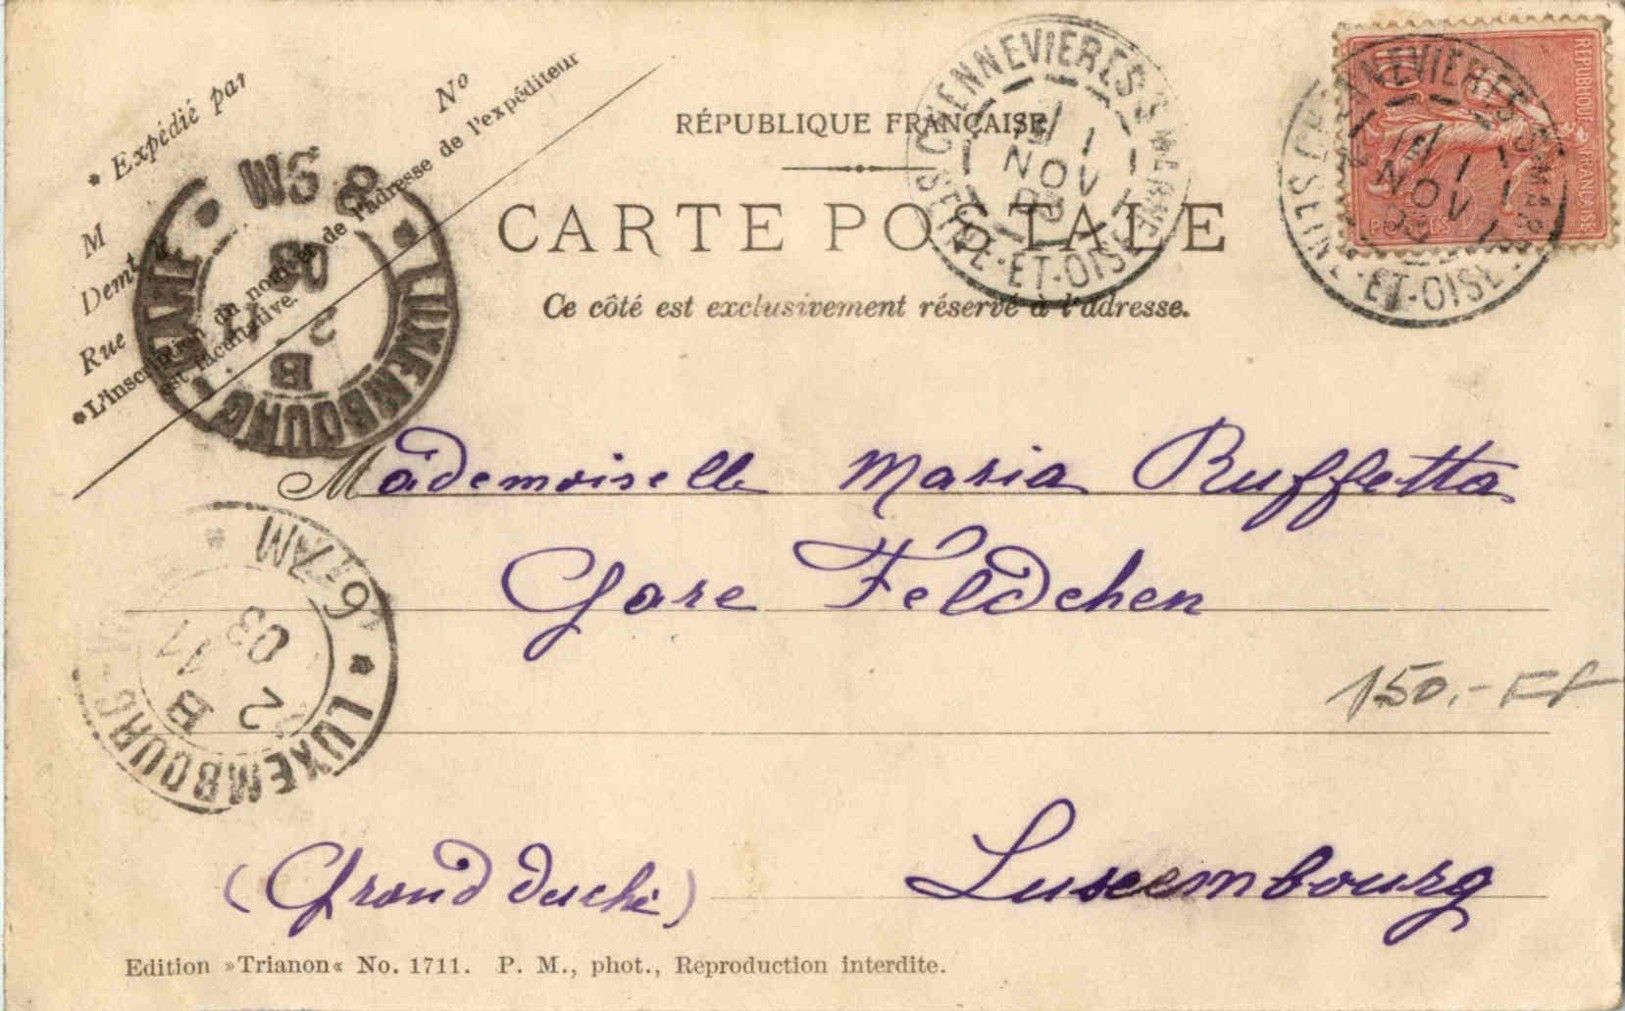 * Expédié par
M
Demt à
Rue
No
* L'inscription du nom et de l'adresse de l'expéditeur
est facultative.
RÉPUBLIQUE FRANÇAISE
CARTE POSTALE
Ce côté est exclusivement réservé à l'adresse.
CHENNEVIERES S. MARNE
1
NOV
03
SEINE-ET-OISE
RÉPUBLIQUE FRANÇAISE
POSTES
NOV
ET-OISE
LUXEMBOURG
8 SM
03
2
B
Mademoiselle Maria Buffetta
Gare Feldchen
150.- FF
LUXEMBOURG
6-7AM
03 11
2
B
(Grand duché) Luxembourg
Edition »Trianon« No. 1711. P. M., phot., Reproduction interdite.